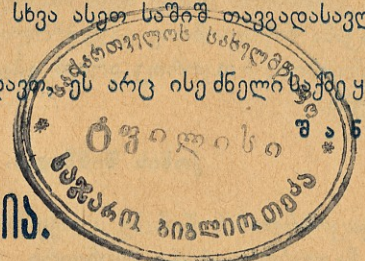 სხვა ასეთ საშიშ თავგადასავლ
ეს არც ისე ძნელი საქმე ყ
შ ა ნ
საქართველოს სახელმწიფო
ტფილისი
საჯარო ბიბლიოთეკა
ია.